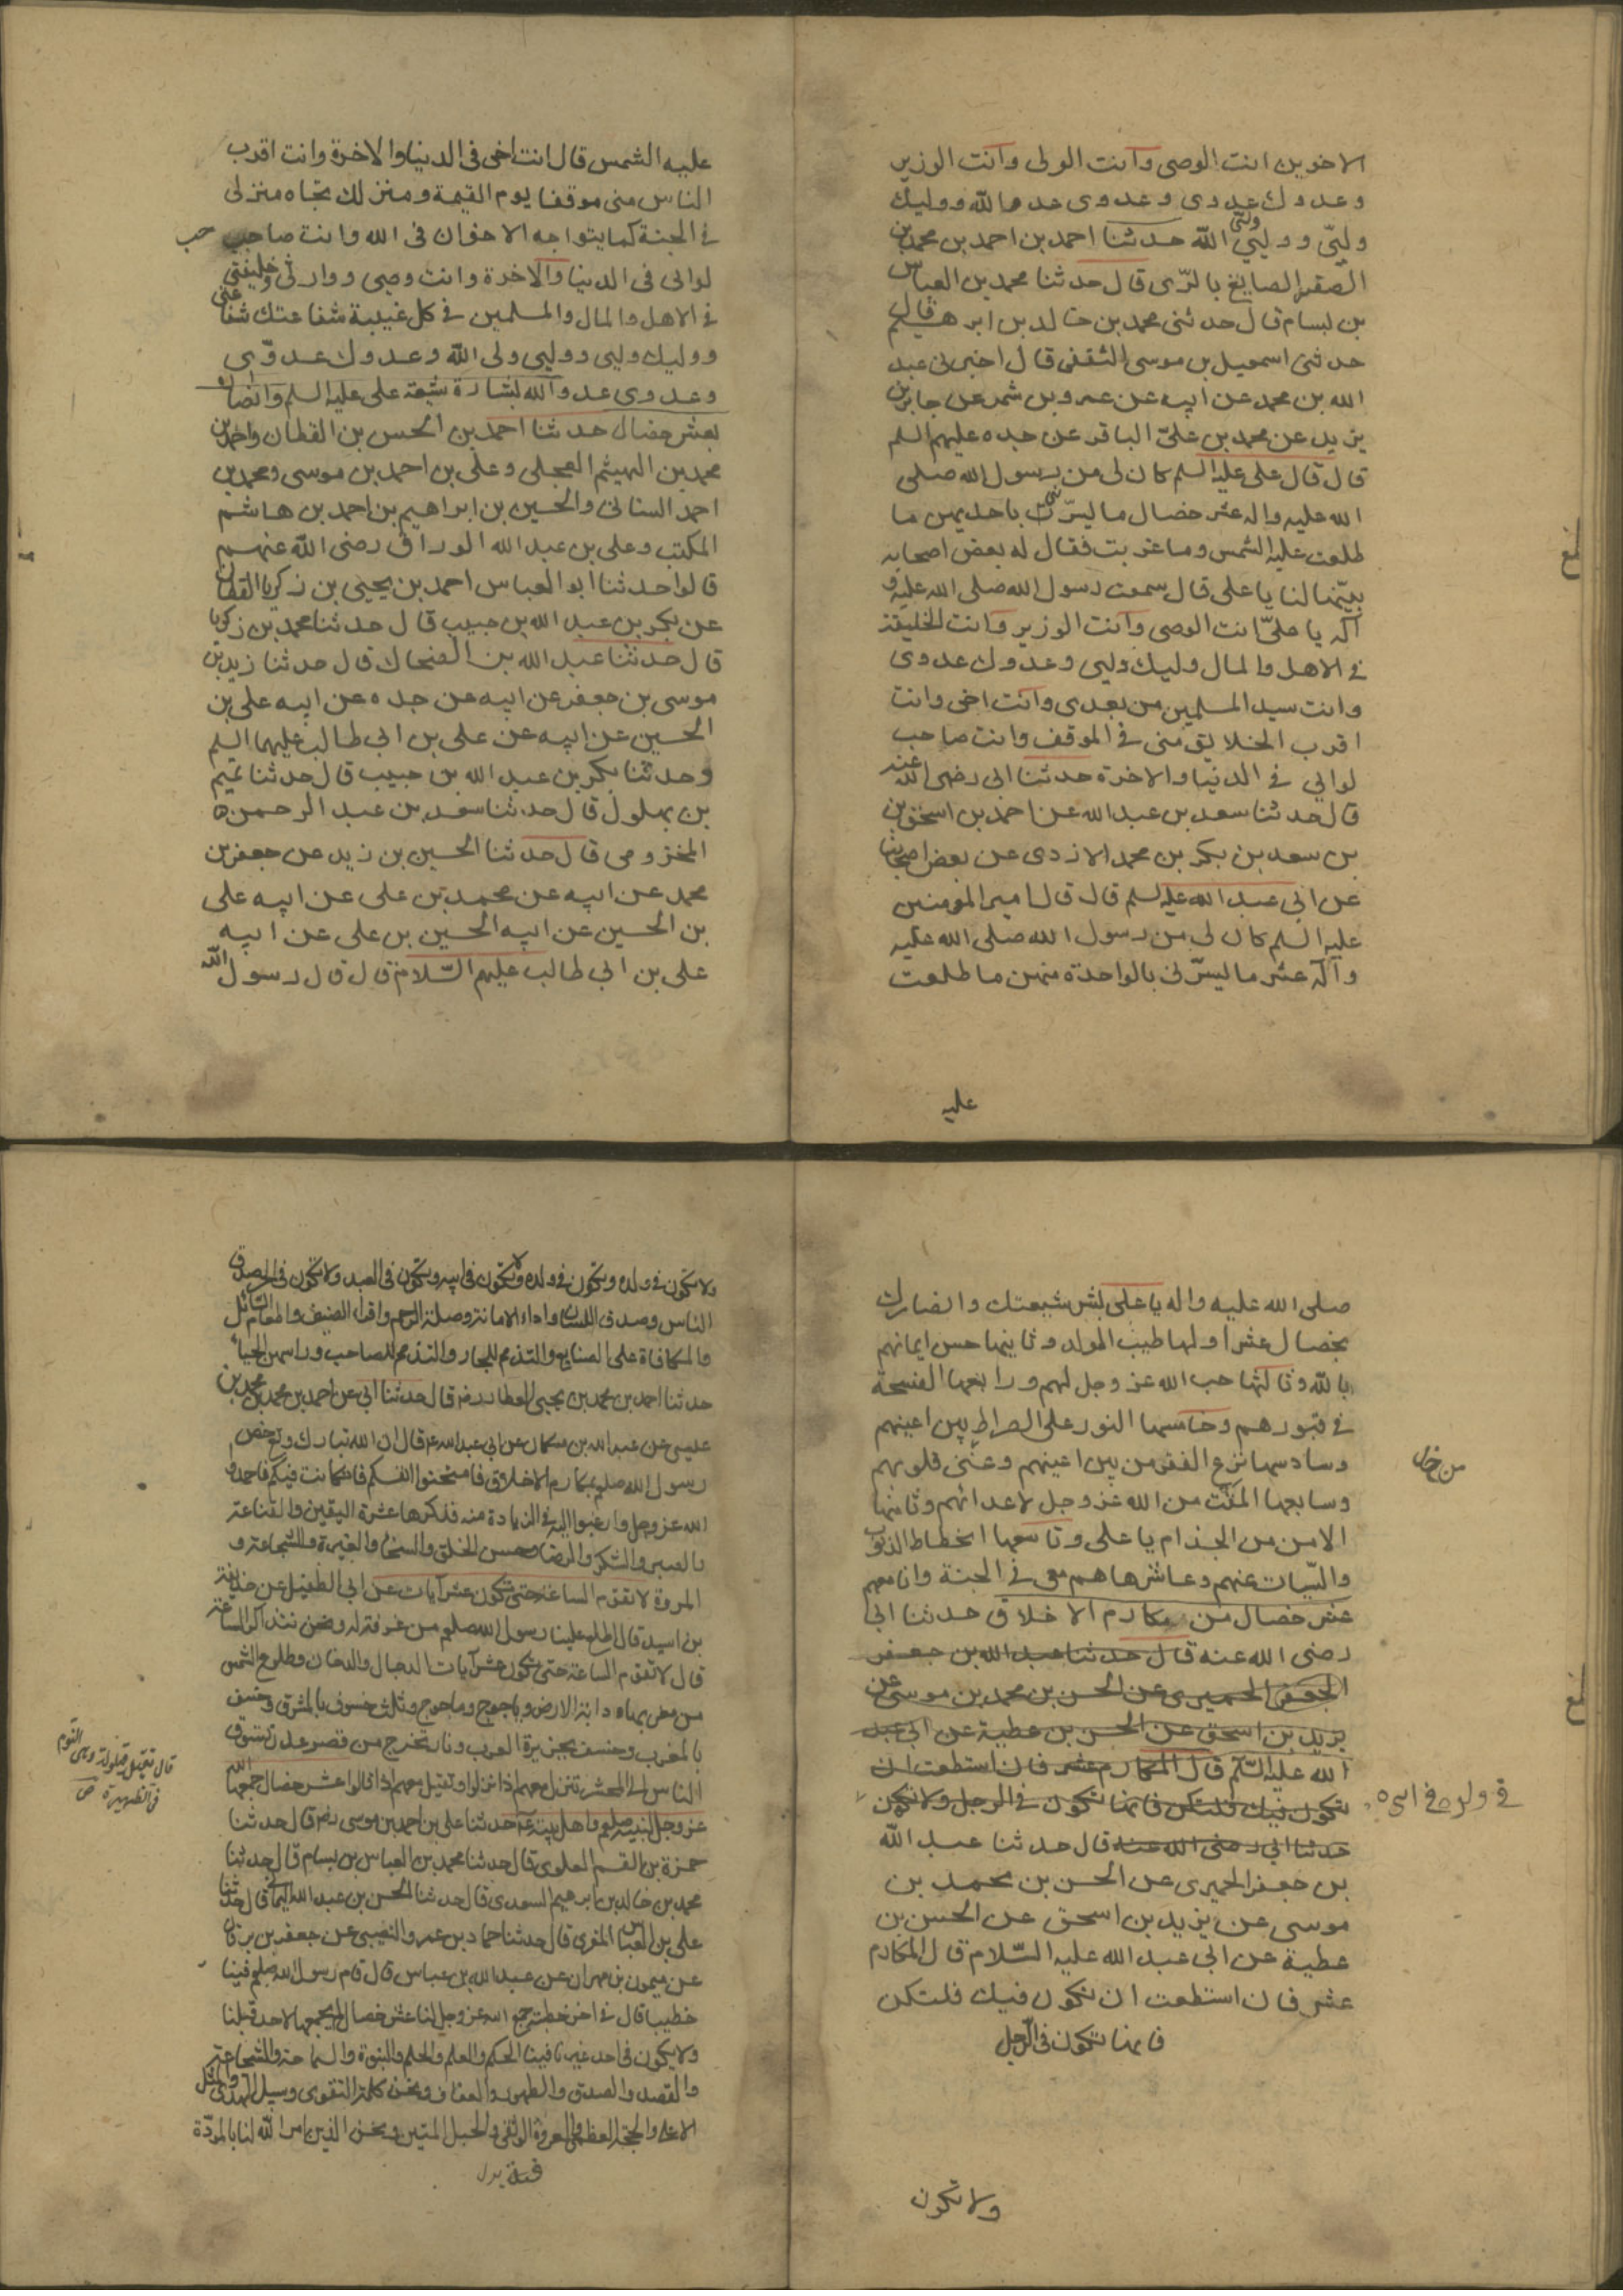 الاخوين انت الوصى وانت الولى وانت الوزير
وعدوك عدوى وعدوى عدو الله ووليك
وليّى ووليّى ولىّ الله حدثنا احمد بن احمد بن محمد بن
الصقر الصايغ بالرّى قال حدثنا محمد بن العباس
بن بسام قال حدثنى محمد بن خالد بن ابرهيم قال
حدثنى اسمعيل بن موسى الثقفى قال اخبرنى عبد
الله بن محمد عن ابيه عن عمرو بن شمر عن جابر بن
يزيد عن محمد بن علىّ الباقر عن جده عليهم السلم
قال قال على عليه السلم كان لى من رسول الله صلى
الله عليه واله عشر خصال ما يسرّنى باحديهن ما
طلعت عليه الشمس وما غربت فقال له بعض اصحابه
بيّنها لنا يا على قال سمعت رسول الله صلى الله عليه و
آله يا علىّ انت الوصى وانت الوزير وانت الخليفة
فى الاهل والمال وليك وليى وعدوك عدوى
وانت سيد المسلمين من بعدى وانت اخى وانت
اقرب الخلايق منى فى الموقف وانت صاحب
لوائي فى الدنيا والاخرة حدثنا ابى رضى الله عنه
قال حدثنا سعد بن عبد الله عن احمد بن اسحق بن
بن سعد بن بكر بن محمد الازدى عن بعض اصحابنا
عن ابى عبد الله عليه السلم قال قال امير المومنين
عليه السلم كان لى من رسول الله صلى الله عليه
وآله عشر ما يسرّنى بالواحدة منهن ما طلعت
عليه
عليه الشمس قال انت اخى فى الدنيا والاخرة وانت اقرب
الناس منى موقفا يوم القيمة ومنزلك تجاه منزلى
فى الجنة كما يتواجه الاخوان فى الله وانت صاحب
حب
لوائى فى الدنيا والاخرة وانت وصيى ووارثى وخليفتى
فى الاهل والمال والمسلمين فى كل غيبة شفاعتك شفاعتى
ووليك وليى ووليى ولى الله وعدوك عدوّى
وعدوى عدو الله بشارة شيعة على عليه السلم وانصاره
بعشر خصال حدثنا احمد بن الحسن بن القطان واحمد بن
محمد بن الهيثم العجلى وعلى بن احمد بن موسى ومحمد بن
احمد السنانى والحسين بن ابراهيم بن احمد بن هاشم
المكتب وعلى بن عبد الله الوراق رضى الله عنهم
قالوا حدثنا ابو العباس احمد بن يحيى بن زكريا القطان
عن بكر بن عبد الله بن حبيب قال حدثنا محمد بن زكريا
قال حدثنا عبد الله بن الضحاك قال حدثنا زيد بن
موسى بن جعفر عن ابيه عن جده عن ابيه على بن
الحسين عن ابيه عن على بن ابى طالب عليهما السلم
وحدثنا بكر بن عبد الله بن حبيب قال حدثنا تميم
بن بهلول قال حدثنا سعد بن عبد الرحمن
المخزومى قال حدثنا الحسين بن زيد عن جعفر بن
محمد عن ابيه عن محمد بن على عن ابيه على
بن الحسين عن ابيه الحسين بن على عن ابيه
على بن ابى طالب عليهم السّلام قال قال رسول الله
صلى الله عليه واله يا على بشر شيعتك وانصارك
بخصال عشر اولها طيب المولد وثانيها حسن ايمانهم
بالله وثالثها حب الله عز وجل لهم ورابعها الفسحة
فى قبورهم وخامسها النور على الصراط بين اعينهم
وسادسها نزع الفقر من بين اعينهم وغنى قلوبهم
وسابعها المقت من الله عز وجل لاعدائهم وثامنها
الامن من الجذام يا على وتاسعها انحطاط الذنوب
والسّيات عنهم وعاشرها هم معى فى الجنة وانا معهم
عشر خصال من مكارم الاخلاق حدثنا ابى
رضى الله عنه قال حدثنا عبد الله بن جعفر
الجعفر الحميرى عن الحسن بن محمد بن موسى عن
يزيد بن اسحق عن الحسن بن عطية عن ابى عبد
الله عليه السّلم قال المكارم عشر فان استطعت ان
تكون فيك فلتكن فانها تكون فى الرجل ولا تكون
فى ولده
حدثنا ابى رضى الله عنه قال حدثنا عبد الله
بن جعفر الحميرى عن الحسن بن محمد بن
موسى عن يزيد بن اسحق عن الحسن بن
عطية عن ابى عبد الله عليه السّلام قال المكارم
عشر فان استطعت ان تكون فيك فلتكن
فانها تكون فى الرّجل
ولا تكون
ولا تكون فى ولده وتكون فى ولده ولا تكون فى ابيه وتكون فى العبد ولا تكون فى الحر صدق
الناس وصدق اللسان واداء الامانة وصلة الرحم واقراء الضيف واطعام السائل
والمكافاة على الصنايع والتذمم للجار والتذمم للصاحب وراسهن الحياء
حدثنا احمد بن محمد بن يحيى العطار رضه قال حدثنا ابى عن احمد بن محمد بن
عيسى عن عبد الله بن مسكان عن ابى عبد الله ع قال ان الله تبارك وتع خص
رسول الله صلعم بمكارم الاخلاق فامتحنوا انفسكم فان كانت فيكم فاحمدوا
الله عز وجل وارغبوا اليه فى الزيادة منه فذكرها عشرة اليقين والقناعة
والصبر والشكر والرضا وحسن الخلق والسخا والغيرة والشجاعة و
المروة لا تقوم الساعة حتى تكون عشر آيات عن ابى الطفيل عن حذيفة
بن اسيد قال اطلع علينا رسول الله صلعم من غرفة له ونحن نتذاكر الساعة
قال لا تقوم الساعة حتى تكون عشر آيات الدجال والدخان وطلوع الشمس
من مغربها ودابة الارض وياجوج وماجوج وثلث خسوف بالمشرق وخسف
بالمغرب وخسف بجزيرة العرب ونار تخرج من قعر عدن تسوق
الناس الى المحشر تنزل معهم اذا نزلوا وتقيل معهم اذا قالوا عشر خصال جمعها الله
عز وجل لنبيه صلعم واهل بيته ع حدثنا على بن احمد بن موسى رضه قال حدثنا
حمزة بن القسم العلوى قال حدثنا محمد بن العباس بن بسام قال حدثنا
محمد بن خالد بن ابرهيم السعدى قال حدثنا الحسن بن عبد الله اليمانى قال حدثنا
على بن العباس المقرى قال حدثنا حماد بن عمرو النصيبى عن جعفر بن برقان
عن ميمون بن مهران عن عبد الله بن عباس قال قام رسول الله صلعم فينا
خطيبا قال فى اخر خطبته جمع الله عز وجل لنا عشر خصال لم يجمعها لاحد قبلنا
ولا يكون فى احد غيرنا فينا الحكم والعلم والحلم والنبوة والسماحة والشجاعة
والقصد والصدق والطهور والعفاف ونحن كلمة التقوى وسبيل الهدى والمثل
الاعلى والحجة العظمى والعروة الوثقى والحبل المتين ونحن الذين امر الله لنا بالمودّة